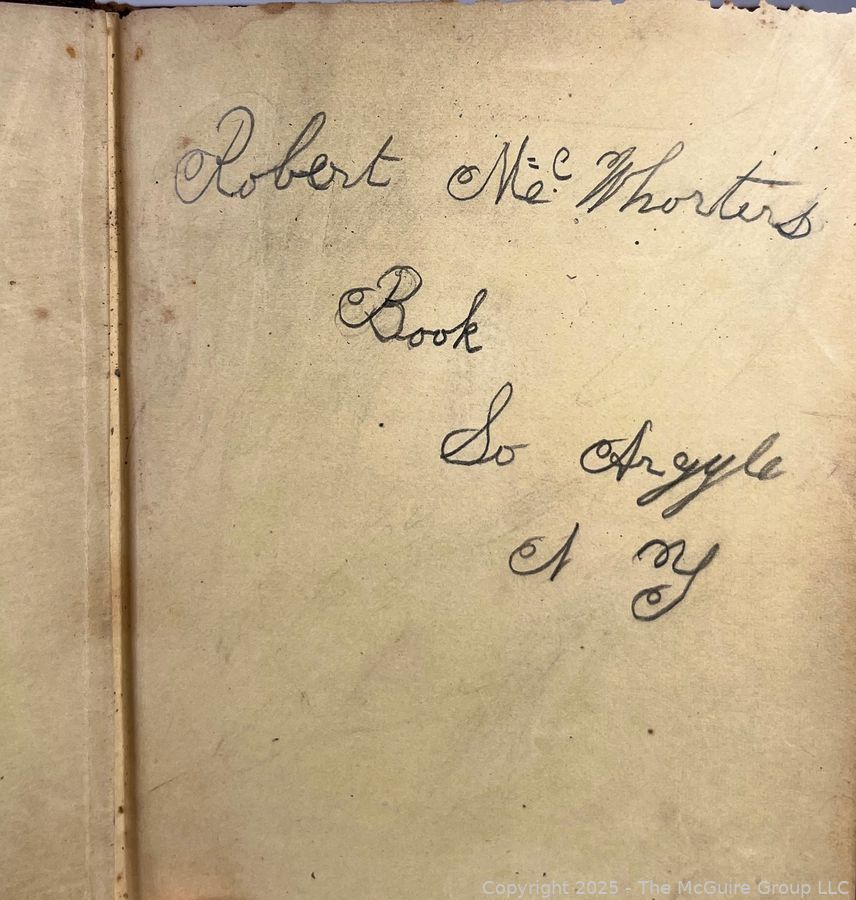 Robert Mc Whorters
Book
So Argyle
N Y
Copyright 2025 - The McGuire Group LLC